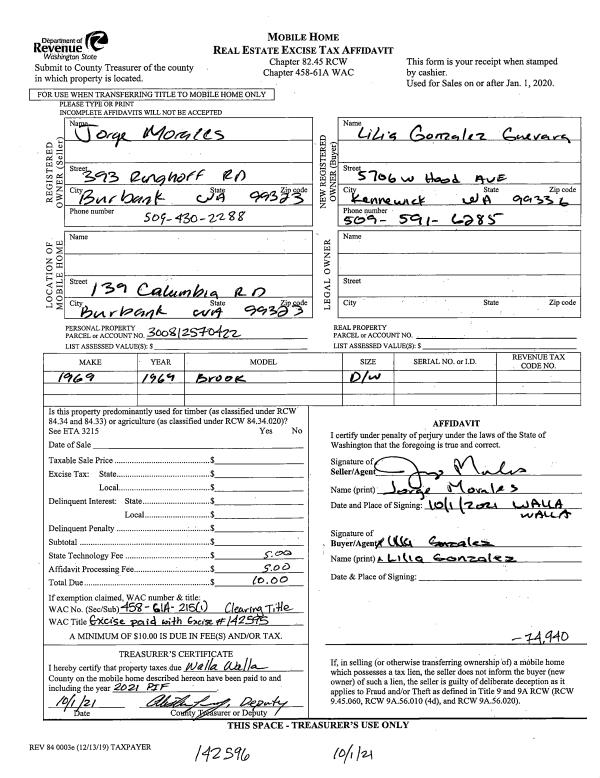 Department of
Revenue
Washington State
Submit to County Treasurer of the county
in which property is located.
MOBILE HOME
REAL ESTATE EXCISE TAX AFFIDAVIT
Chapter 82.45 RCW
Chapter 458-61A WAC
This form is your receipt when stamped
by cashier.
Used for Sales on or after Jan. 1, 2020.
FOR USE WHEN TRANSFERRING TITLE TO MOBILE HOME ONLY
PLEASE TYPE OR PRINT
INCOMPLETE AFFIDAVITS WILL NOT BE ACCEPTED
REGISTERED
OWNER (Seller)
Name
Jorge Morales
Street
393 Ringhoff RD
City State Zip code
Burbank WA 99323
Phone number
509-430-2288
NEW REGISTERED
OWNER (Buyer)
Name
Lilia Gonzalez Guevara
Street
5706 W Hood AVE
City State Zip code
Kennewick WA 99336
Phone number
509-591-6285
LOCATION OF
MOBILE HOME
Name
Street
139 Columbia RD
City State Zip code
Burbank WA 99323
LEGAL OWNER
Name
Street
City State Zip code
PERSONAL PROPERTY
PARCEL or ACCOUNT NO. 300812570422
LIST ASSESSED VALUE(S): $
REAL PROPERTY
PARCEL or ACCOUNT NO.
LIST ASSESSED VALUE(S): $
MAKE YEAR MODEL SIZE SERIAL NO. or I.D. REVENUE TAX
CODE NO.
1969 1969 Brook D/W
Is this property predominantly used for timber (as classified under RCW
84.34 and 84.33) or agriculture (as classified under RCW 84.34.020)?
See ETA 3215 Yes No
Date of Sale
Taxable Sale Price $
Excise Tax: State $
Local $
Delinquent Interest: State $
Local $
Delinquent Penalty $
Subtotal $
State Technology Fee $ 5.00
Affidavit Processing Fee $ 5.00
Total Due $ 10.00
If exemption claimed, WAC number & title:
WAC No. (Sec/Sub) 458-61A-215(1) Clearing Title
WAC Title Excise paid with Excise #142595
A MINIMUM OF $10.00 IS DUE IN FEE(S) AND/OR TAX.
AFFIDAVIT
I certify under penalty of perjury under the laws of the State of
Washington that the foregoing is true and correct.
Signature of
Seller/Agent
Name (print) Jorge Morales
Date and Place of Signing: 10/1/2021 WALLA
WALLA
Signature of
Buyer/Agent x Lilia Gonzalez
Name (print) x Lilia Gonzalez
Date & Place of Signing:
-74,940
TREASURER'S CERTIFICATE
I hereby certify that property taxes due Walla Walla
County on the mobile home described hereon have been paid to and
including the year 2021 PIF.
10/1/21 Deputy
Date County Treasurer or Deputy
If, in selling (or otherwise transferring ownership of) a mobile home
which possesses a tax lien, the seller does not inform the buyer (new
owner) of such a lien, the seller is guilty of deliberate deception as it
applies to Fraud and/or Theft as defined in Title 9 and 9A RCW (RCW
9.45.060, RCW 9A.56.010 (4d), and RCW 9A.56.020).
THIS SPACE - TREASURER'S USE ONLY
REV 84 0003e (12/13/19) TAXPAYER
142596 10/1/21